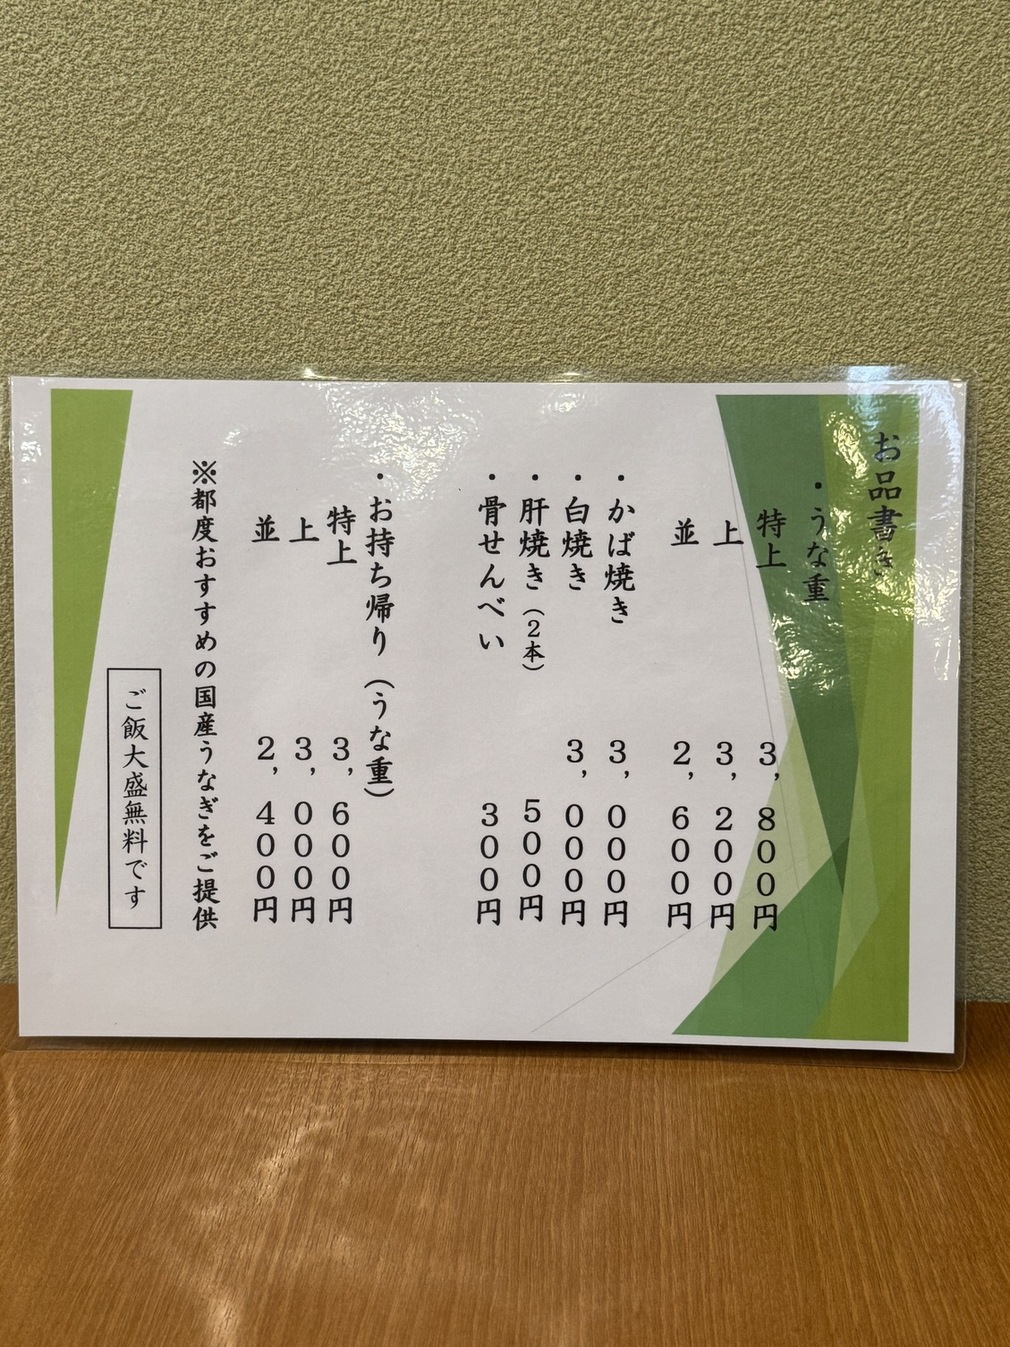 お品書き
・うな重
特上 3,800円
上 3,200円
並 2,600円
・かば焼き 3,000円
・白焼き 3,000円
・肝焼き（2本） 500円
・骨せんべい 300円
・お持ち帰り（うな重）
特上 3,600円
上 3,000円
並 2,400円
※都度おすすめの国産うなぎをご提供
ご飯大盛無料です